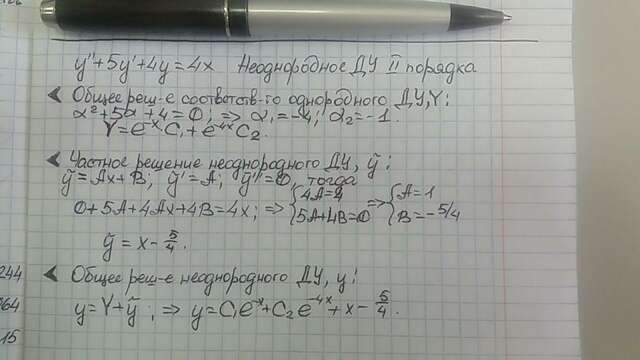 y''+5y'+4y=4x Неоднородное ДУ II порядка
Общее реш-е соответств-го однородного ДУ, Y:
α²+5α+4=0; => α₁=-4; α₂=-1.
Y=e⁻ˣC₁+e⁻⁴ˣC₂.
Частное решение неоднородного ДУ, ỹ:
ỹ=Ax+B; ỹ'=A; ỹ''=0, тогда
0+5A+4Ax+4B=4x; => {4A=4 => {A=1
5A+4B=0 B=-5/4
ỹ=x-5/4.
244 Общее реш-е неоднородного ДУ, y:
64 y=Y+ỹ; => y=C₁e⁻ˣ+C₂e⁻⁴ˣ+x-5/4.
15